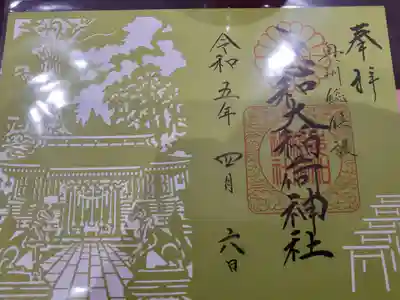 奉拝
奥州総鎮
志和大稲荷神社
令和五年 四月 六日